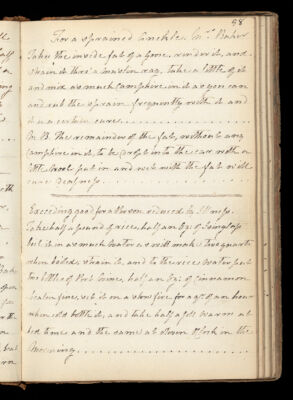 58
For a sprained Anckle. Mrs. Baker
Take the inside fat of a goose, render it, and
strain it thro' a muslin rag, take a little of it
and mix as much Camphire in it as you can
and rub the sprain frequently with it and
it is a certain cure
N.B. The remainder of the fat, without any
Camphire in it, to be dropt into the ear with a
little wool put in and rub with the fat will
cure Deafness
Exceeding good for a Person reduced by Illness.
Take half a pound of rice, half an Oz: of Isinglass
boil it in as much Water as will make three quarts
when boiled, strain it, and to the rice Water put
two bottles of Port Wine, half an Oz: of Cinnamon
beaten fine, set it on a slow fire for ¼ of an hour
when cold bottle it, and take half a gill warm at
bed time and the same at eleven O'Clock in the
Morning